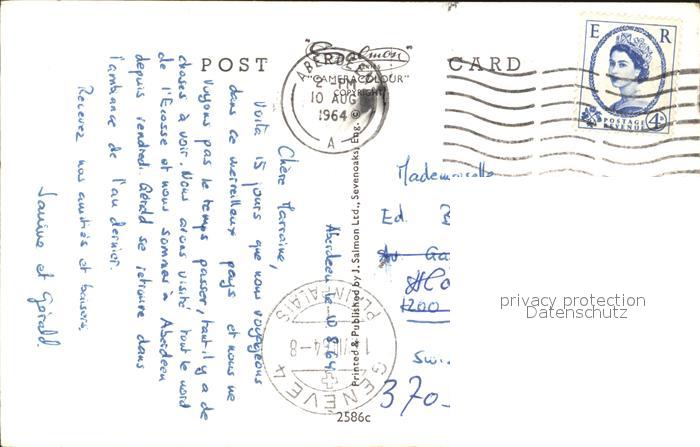 POST CARD
"Salmon"
SERIES
"CAMERACOLOUR"
COPYRIGHT
ABERDEEN
2 PM
10 AUG
1964
A
E R
POSTAGE
REVENUE
4D
Printed & Published by J. Salmon Ltd., Sevenoaks, Eng. ©
2586c
Aberdeen le 10.8.64
Chère Marraine,
Voilà 15 jours que nous voyageons
dans ce merveilleux pays et nous ne
voyons pas le temps passer, tant il y a de
choses à voir. Nous avons visité tout le nord
de l'Ecosse et nous sommes à Aberdeen
depuis vendredi. Gérald se retrouve dans
l'ambiance de l'an dernier.
Recevez nos amitiés et baisers.
Janine et Gérald.
Mademoiselle
Ed.
Av. Ga
1200
Sui
370-
GENÈVE 4
PLAINPALAIS
64-8
privacy protection
Datenschutz